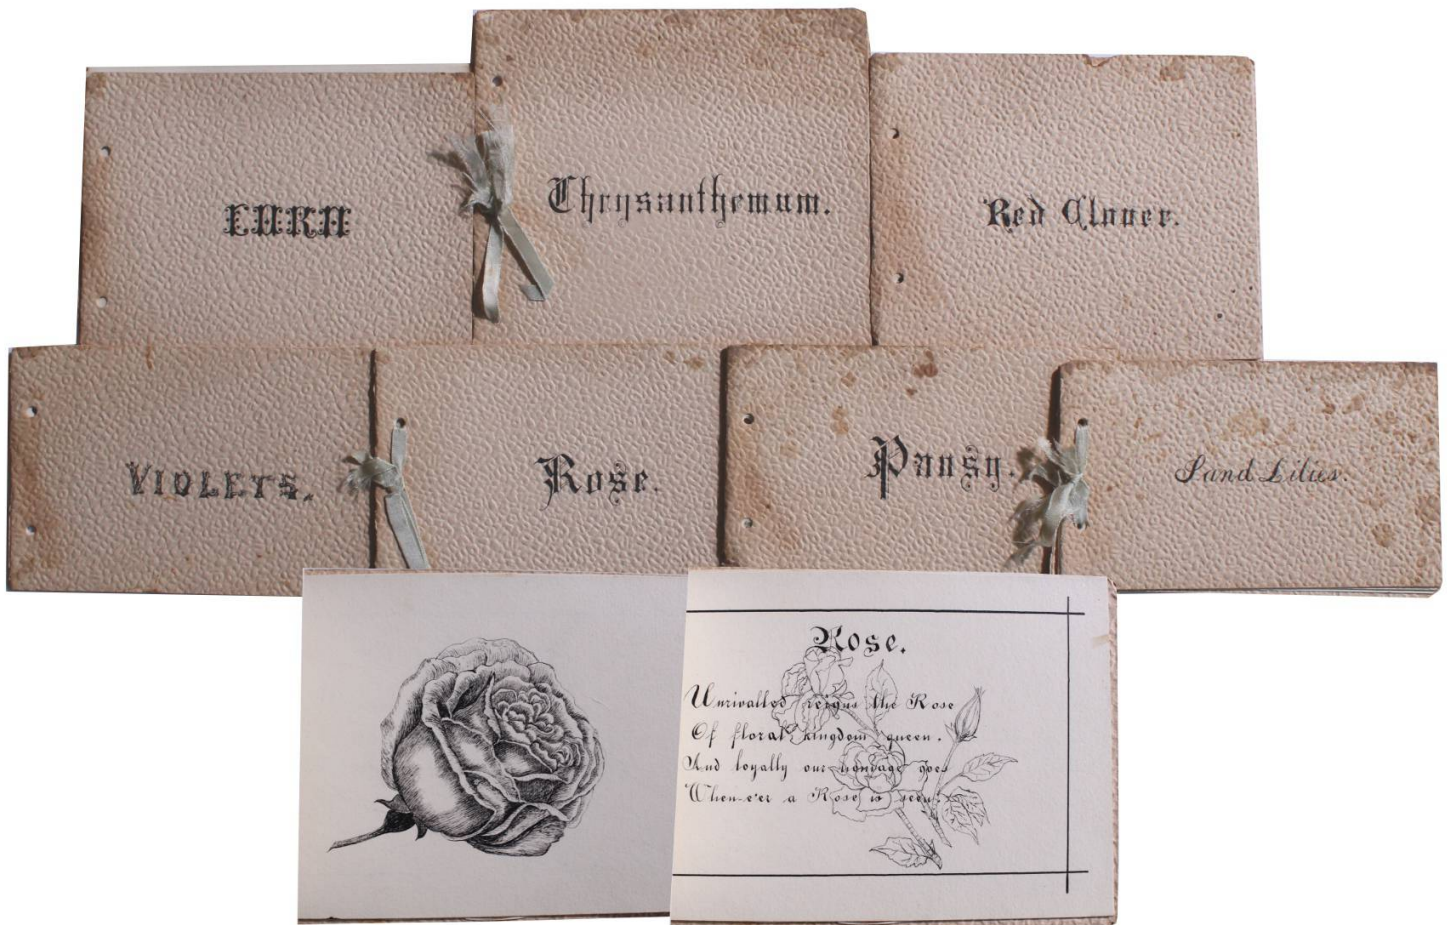 Chrysanthemum.
Red Clover.
VIOLETS.
Rose.
Pansy.
Sand Lilies.
Rose.
Unrivalled reigns the Rose
Of floral kingdom queen.
And loyally our goes
When-e'er a Rose is seen.